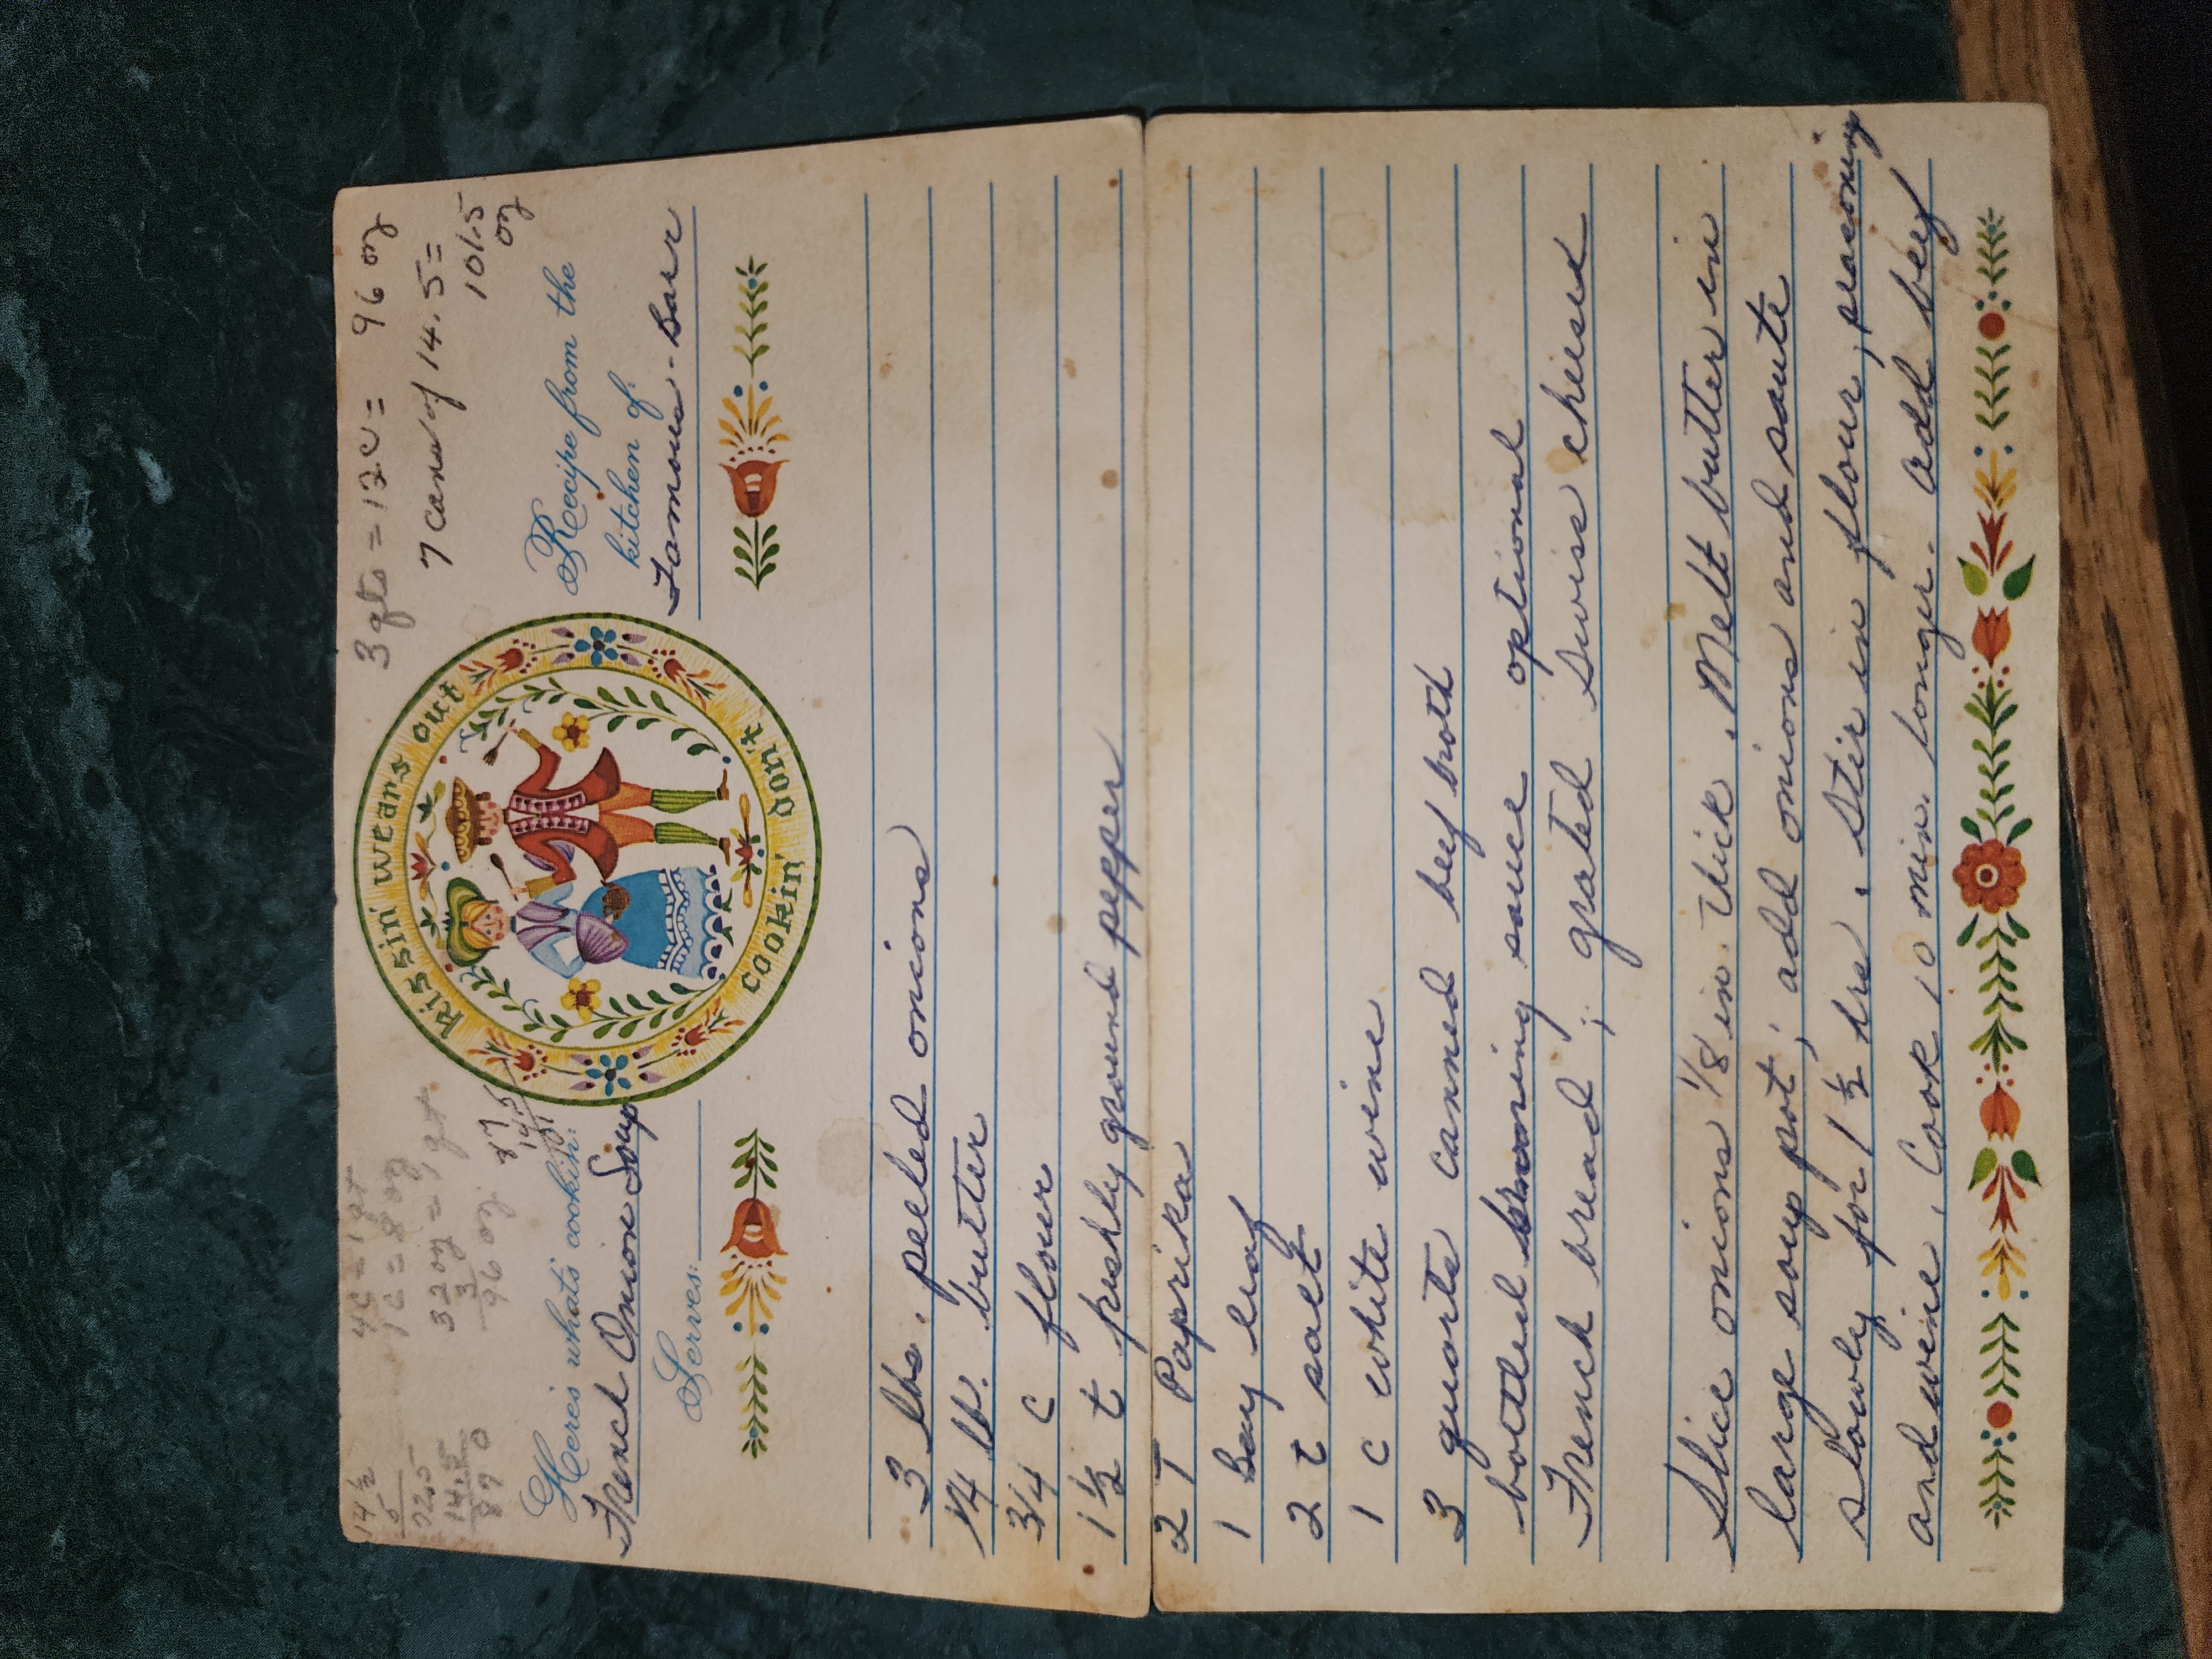 14 1/2
5
72.5
14.5
87 0
4c = 1 qt
1c = 8 oz
32 oz = 1 qt
3
96 oz
87
14.5
101.5
3 qts = 12c = 96 oz
7 cans of 14.5 =
101.5
oz
kissin' wears out
cookin' don't
Here's what's cookin':
French Onion Soup
Serves:
Recipe from the
kitchen of:
Famous-Barr
3 lbs. peeled onions
1/4 lb. butter
3/4 c flour
1 1/2 t freshly ground pepper
2 T Paprika
1 Bay leaf
2 t salt
1 c white wine
3 quarts canned beef broth
bottled browning sauce optional
French bread ; grated Swiss cheese
Slice onions 1/8 in. thick. Melt butter in
large soup pot; add onions and saute
slowly for 1 1/2 hrs. Stir in flour, seasoning
and wine. Cook 10 min. longer. Add beef